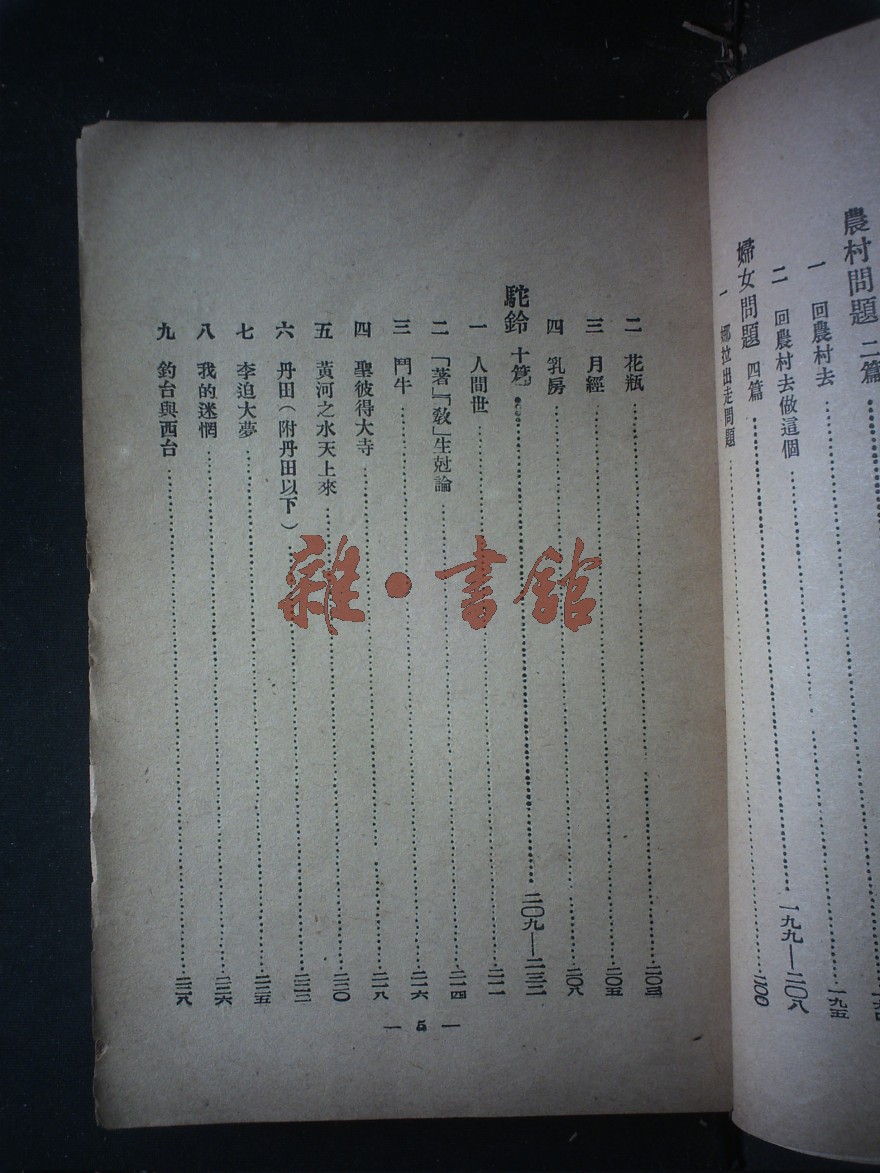 農村問題 二篇
一 回農村去 一九五
二 回農村去做這個
婦女問題 四篇 一九九—二〇八
一 娜拉出走問題 二〇〇
二 花瓶 二〇三
三 月經 二〇五
四 乳房 二〇八
駝鈴 十篇 二〇九—二三二
一 人間世 二一一
二 「著」「教」生尅論 二一四
三 鬥牛 二一六
四 聖彼得大寺 二一八
五 黃河之水天上來 二二〇
六 丹田(附丹田以下) 二二三
七 李迫大夢 二二五
八 我的迷惘 二二六
九 釣台與西台 二二八
— 5 —
雜·書館